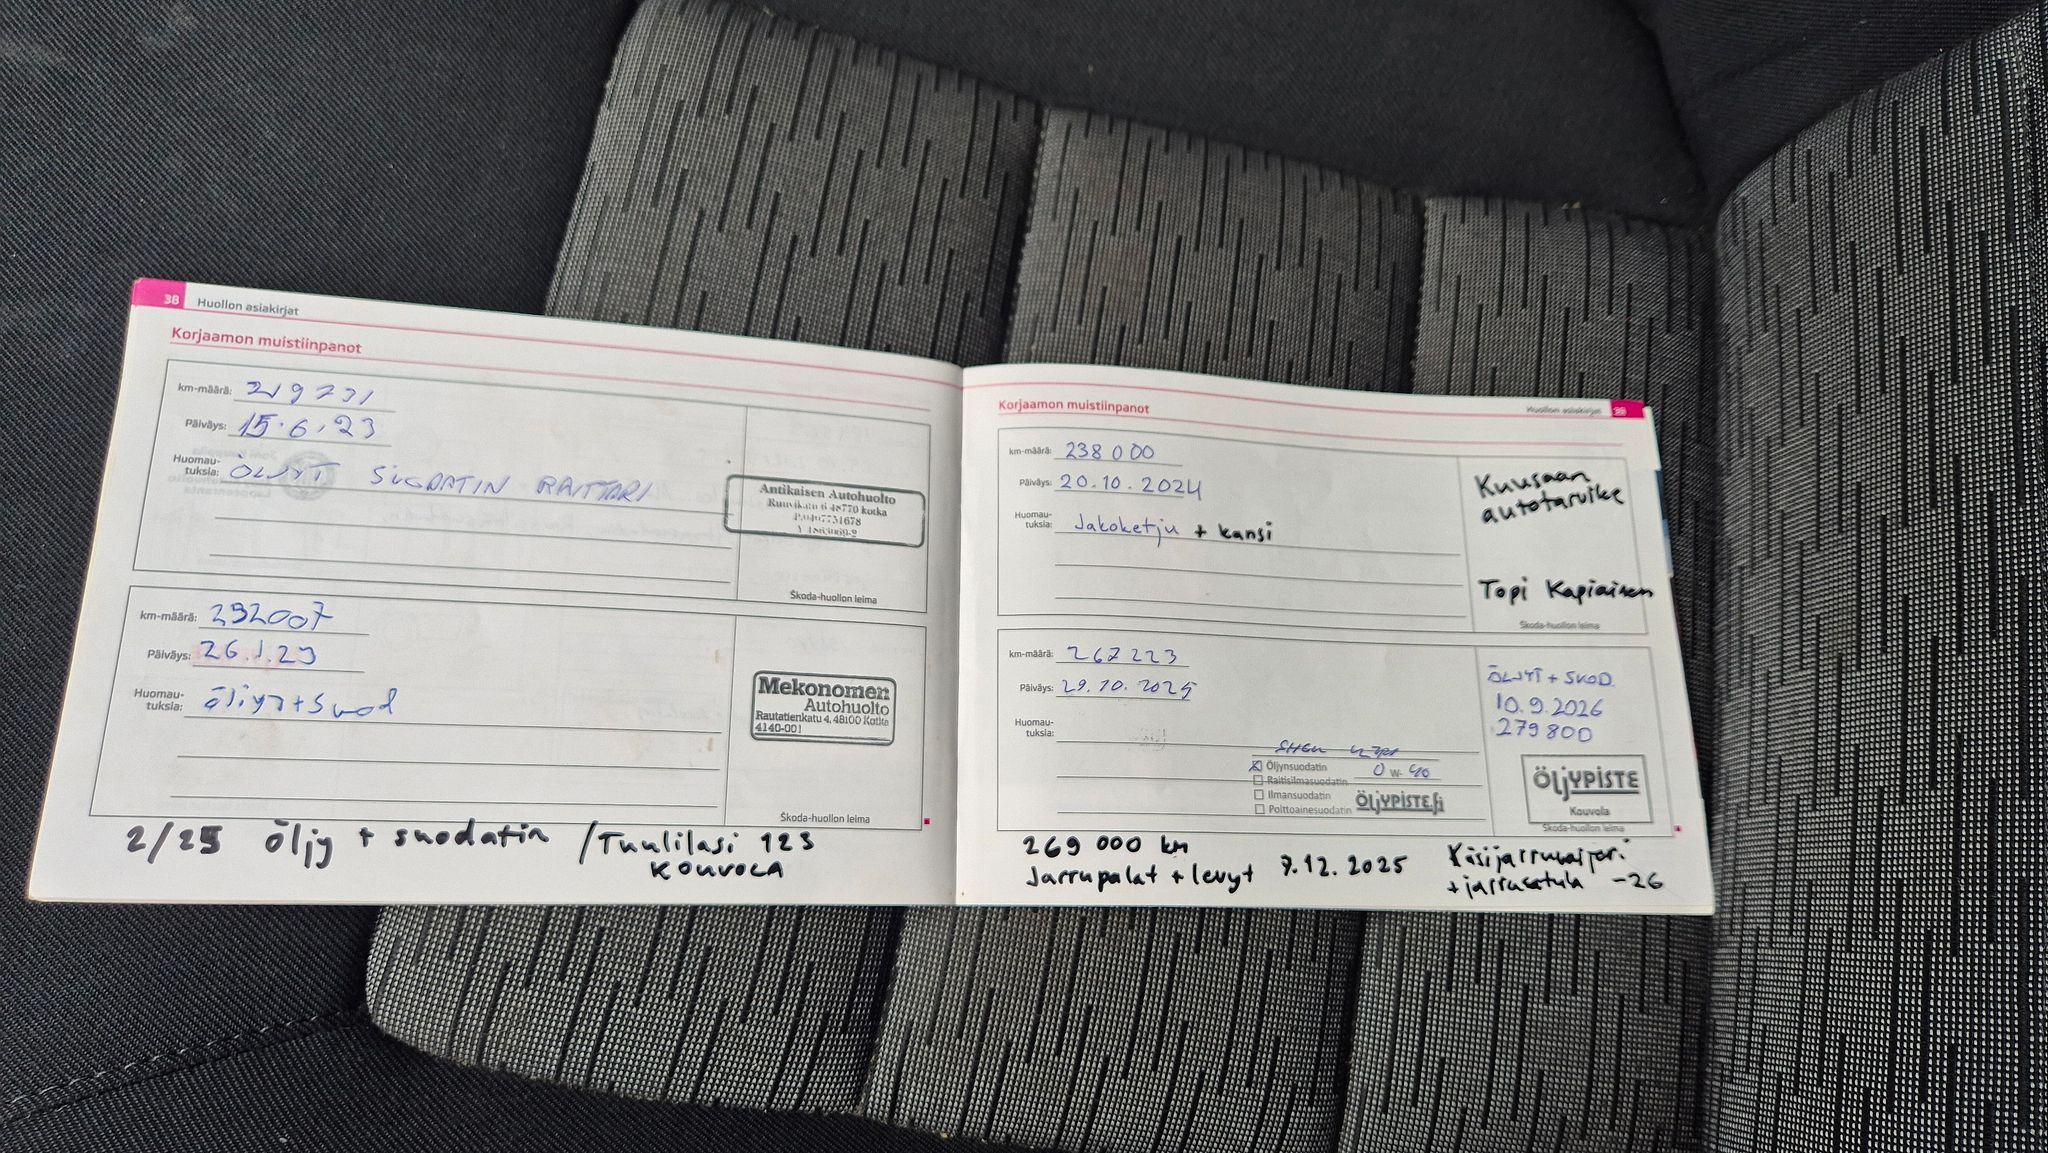 38 Huollon asiakirjat
Korjaamon muistiinpanot
km-määrä: 219731
Päiväys: 15.6.23
Huomau-
tuksia: ÖLJYT SUODATIN RAITTARI
Antikaisen Autohuolto
Ruuvikatu 6 48770 kotka
P.0407731678
Škoda-huollon leima
km-määrä: 232007
Päiväys: 26.1.29
Huomau-
tuksia: öljyt+suod
Mekonomen
Autohuolto
Rautatienkatu 4, 48100 Kotka
4140-001
Škoda-huollon leima
2/25 öljy + suodatin / Tuulilasi 123
KOUVOLA
Korjaamon muistiinpanot
Huollon asiakirjat 39
km-määrä: 238 000
Päiväys: 20.10.2024
Huomau-
tuksia: Jakoketju + kansi
Kuusaan
autotarvike
Topi Kapiainen
Škoda-huollon leima
km-määrä: 267223
Päiväys: 29.10.2025
Huomau-
tuksia:
Öljynsuodatin 0 W- 40
Raitisilmasuodatin
Ilmansuodatin
Polttoainesuodatin ÖLJYPISTE.fi
ÖLJYT + SUOD.
10.9.2026
279800
ÖLJYPISTE
Kouvola
Škoda-huollon leima
269 000 km
Jarrupalat + levyt 7.12.2025
Käsijarruvaijeri
+jarrusatula -26